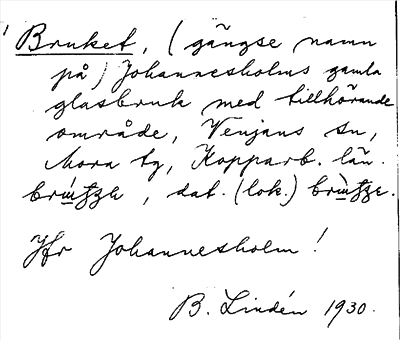 Bruket, (gängse namn
på) Johannesholms gamla
glasbruk med tillhörande
område, Venjans sn,
Mora tg, Kopparb. län.
dat. (lok.)
Jfr Johannesholm!
B. Lindén 1930.